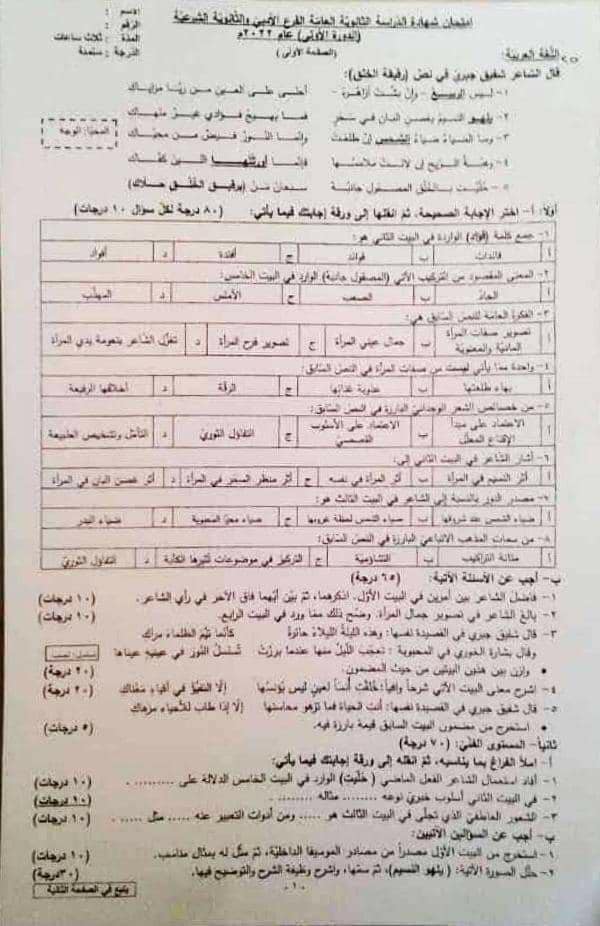 امتحان شهادة الدراسة الثانوية العامة الفرع الأدبي والثانوية الشرعية
(الدورة الأولى) عام ٢٠٢٢م
(الصفحة الأولى)
الاسم :
الرقم :
المدة : ثلاث ساعات
الدرجة : ستمئة
اللغة العربية:
قال الشاعر شفيق جبري في نص (رقيقة الخلق):
١- ليس الربيع - وإن بشت أزاهره - أحلى على العين من ريّا مزاياك
٢- يلهو النسيم بغصن البان في سحر فما يهيج فؤادي غير منهاك
٣- وما الضياء ضياء الشمس إن طلعت وإنما النور فيض من محياك
٤- وهبّة الريح إن لانت ملامسها فإنما أورثتها اللين كفّاك
٥- حليت بالخلق المصقول جانبه سبحان من (برقيق الخلق حلاك)
المحيّا: الوجه
أولاً: أ- اختر الإجابة الصحيحة، ثم انقلها إلى ورقة إجابتك فيما يأتي: (٨٠ درجة لكل سؤال ١٠ درجات)
١- جمع كلمة (فؤاد) الواردة في البيت الثاني هو:
أ فائدات ب فوائد ج أفئدة د أفواد
٢- المعنى المقصود من التركيب الآتي (المصقول جانبه) الوارد في البيت الخامس:
أ الحادّ ب الصعب ج الأملس د المهذّب
٣- الفكرة العامة للنص السابق هي:
أ تصوير صفات المرأة المادية والمعنوية ب جمال عيني المرأة ج تصوير فرح المرأة د تغزّل الشاعر بنعومة يدي المرأة
٤- واحدة مما يأتي ليست من صفات المرأة في النص السابق:
أ بهاء طلعتها ب عذوبة غنائها ج الرقّة د أخلاقها الرفيعة
٥- من خصائص الشعر الوجداني البارزة في النص السابق:
أ الاعتماد على مبدأ الإقناع المعلّل ب الاعتماد على الأسلوب القصصي ج التفاؤل الثوري د التأمل وتشخيص الطبيعة
٦- أشار الشاعر في البيت الثاني إلى:
أ أثر النسيم في المرأة ب أثر المرأة في نفسه ج أثر منظر السحر في المرأة د أثر غصن البان في المرأة
٧- مصدر النور بالنسبة إلى الشاعر في البيت الثالث هو:
أ ضياء الشمس عند شروقها ب ضياء الشمس لحظة غروبها ج ضياء محيّا المحبوبة د ضياء البدر
٨- من سمات المذهب الاتباعي البارزة في النص السابق:
أ متانة التراكيب ب التشاؤمية ج التركيز في موضوعات أثيرها الكآبة د التفاؤل الثوري
ب- أجب عن الأسئلة الآتية: (٦٥ درجة)
١- فاضل الشاعر بين أمرين في البيت الأول. اذكرهما، ثم بيّن أيهما فاق الآخر في رأي الشاعر. (١٠ درجات)
٢- بالغ الشاعر في تصوير جمال المرأة. وضّح ذلك مما ورد في البيت الرابع. (١٠ درجات)
٣- قال شفيق جبري في القصيدة نفسها: وهذه الليلة الليلاء حائرة كأنما تيّم الظلماء مرآك
وقال بشارة الخوري في المحبوبة : تعجّب الليل منها عندما برزت تُسلسل النور في عينيه عيناها
• وازن بين هذين البيتين من حيث المضمون. (٢٠ درجة)
٤- اشرح معنى البيت الآتي شرحاً وافياً: خُلقت أنساً لعين ليس يؤنسها إلّا التفيّؤ في أفياء مغناك (٢٠ درجة)
٥- قال شفيق جبري في القصيدة نفسها: أنت الحياة فما تزهو محاسنها إلّا إذا طاب للأحياء مزهاك
• استخرج من مضمون البيت السابق قيمة بارزة فيه. (٥ درجات)
ثانياً- المستوى الفني: (٧٠ درجة)
أ- املأ الفراغ بما يناسبه، ثم انقله إلى ورقة إجابتك فيما يأتي:
١- أفاد استعمال الشاعر الفعل الماضي (حُلّيت) الوارد في البيت الخامس الدلالة على ......... (١٠ درجات)
٢- في البيت الثاني أسلوب خبري نوعه ........ مثاله ........ (١٠ درجات)
٣- الشعور العاطفي الذي تجلّى في البيت الثالث هو ..... ومن أدوات التعبير عنه ..... مثل ..... (١٠ درجات)
ب- أجب عن السؤالين الآتيين:
١- استخرج من البيت الأول مصدراً من مصادر الموسيقا الداخلية، ثم مثّل له بمثال مناسب. (١٠ درجات)
٢- حلّل الصورة الآتية: (يلهو النسيم)، ثم سمّها، واشرح وظيفة الشرح والتوضيح فيها. (٣٠ درجة)
- ١ -
يتبع في الصفحة الثانية